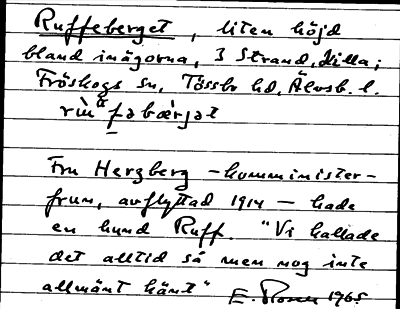 Ruffeberget, liten höjd
bland inägorna, 3 Strand, Lilla;
Fröskogs sn, Tössbo hd, Älvsb. l.
Fru Herzberg – komminister-
frun, avflyttad 1914 – hade
en hund Ruff. "Vi kallade
det alltid så men nog inte
allmänt känt" E. 1965